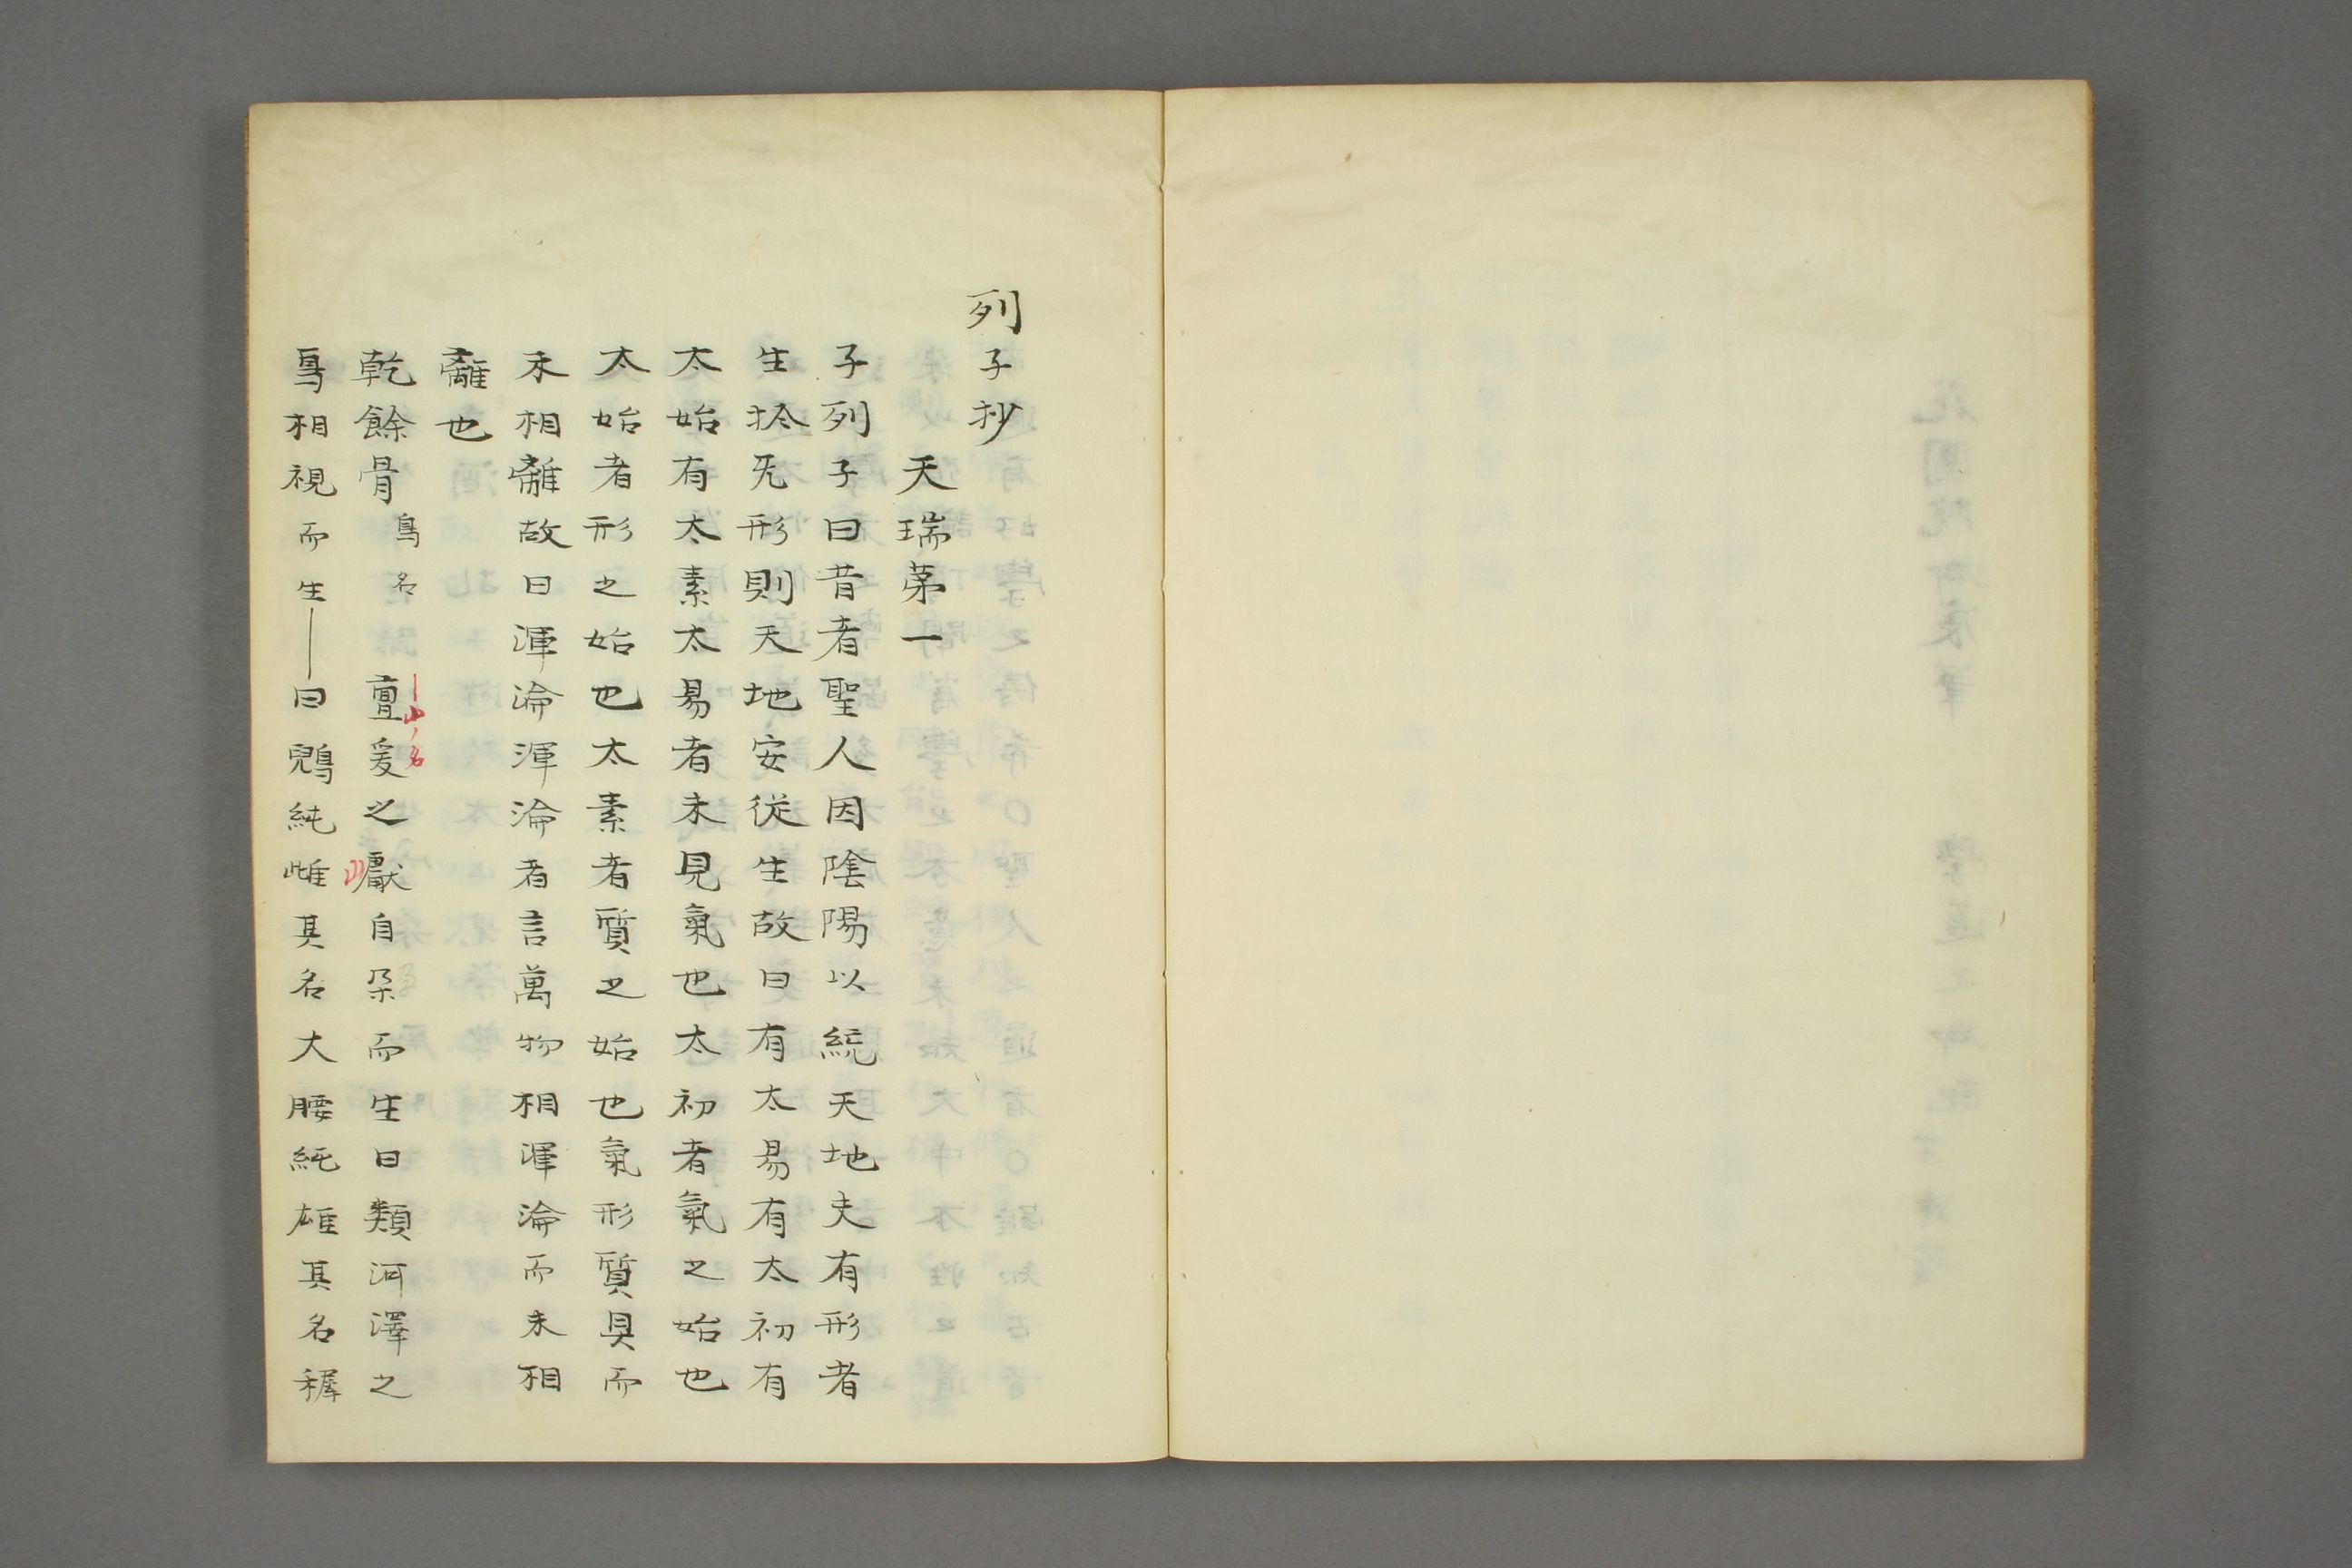 列子抄
天瑞苐一
子列子曰昔者聖人因陰陽以統天地夫有形者
生扵旡形則天地安從生故曰有太易有太初有
太始有太素太易者未見氣也太初者氣之始也
太始者形之始也太素者質之始也氣形質具而
未相離故曰渾淪渾淪者言萬物相渾淪而未相
離也
乾餘骨 鳥名 亶爰之獸自孕而生曰類河澤之
｜山ノ名
鳥相視而生｜曰鶂純雌其名大腰純雄其名稺